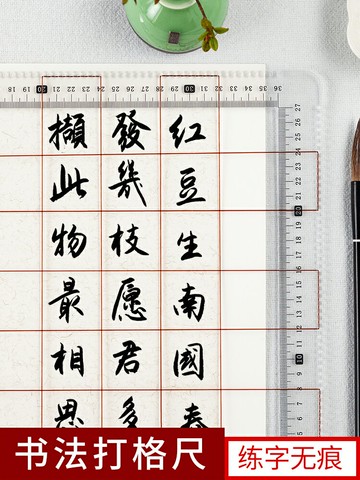 18 19 20 21 22 23 24 25 26 27 28 29 30 31 32 33 34 35 36
27 26 25 24 23 22 21 20 19 18 17 16 15 14 13 12 11 10 9 8 7 6 5
红豆生南國春
發幾枝愿君多
擷此物最相思
书法打格尺
练字无痕